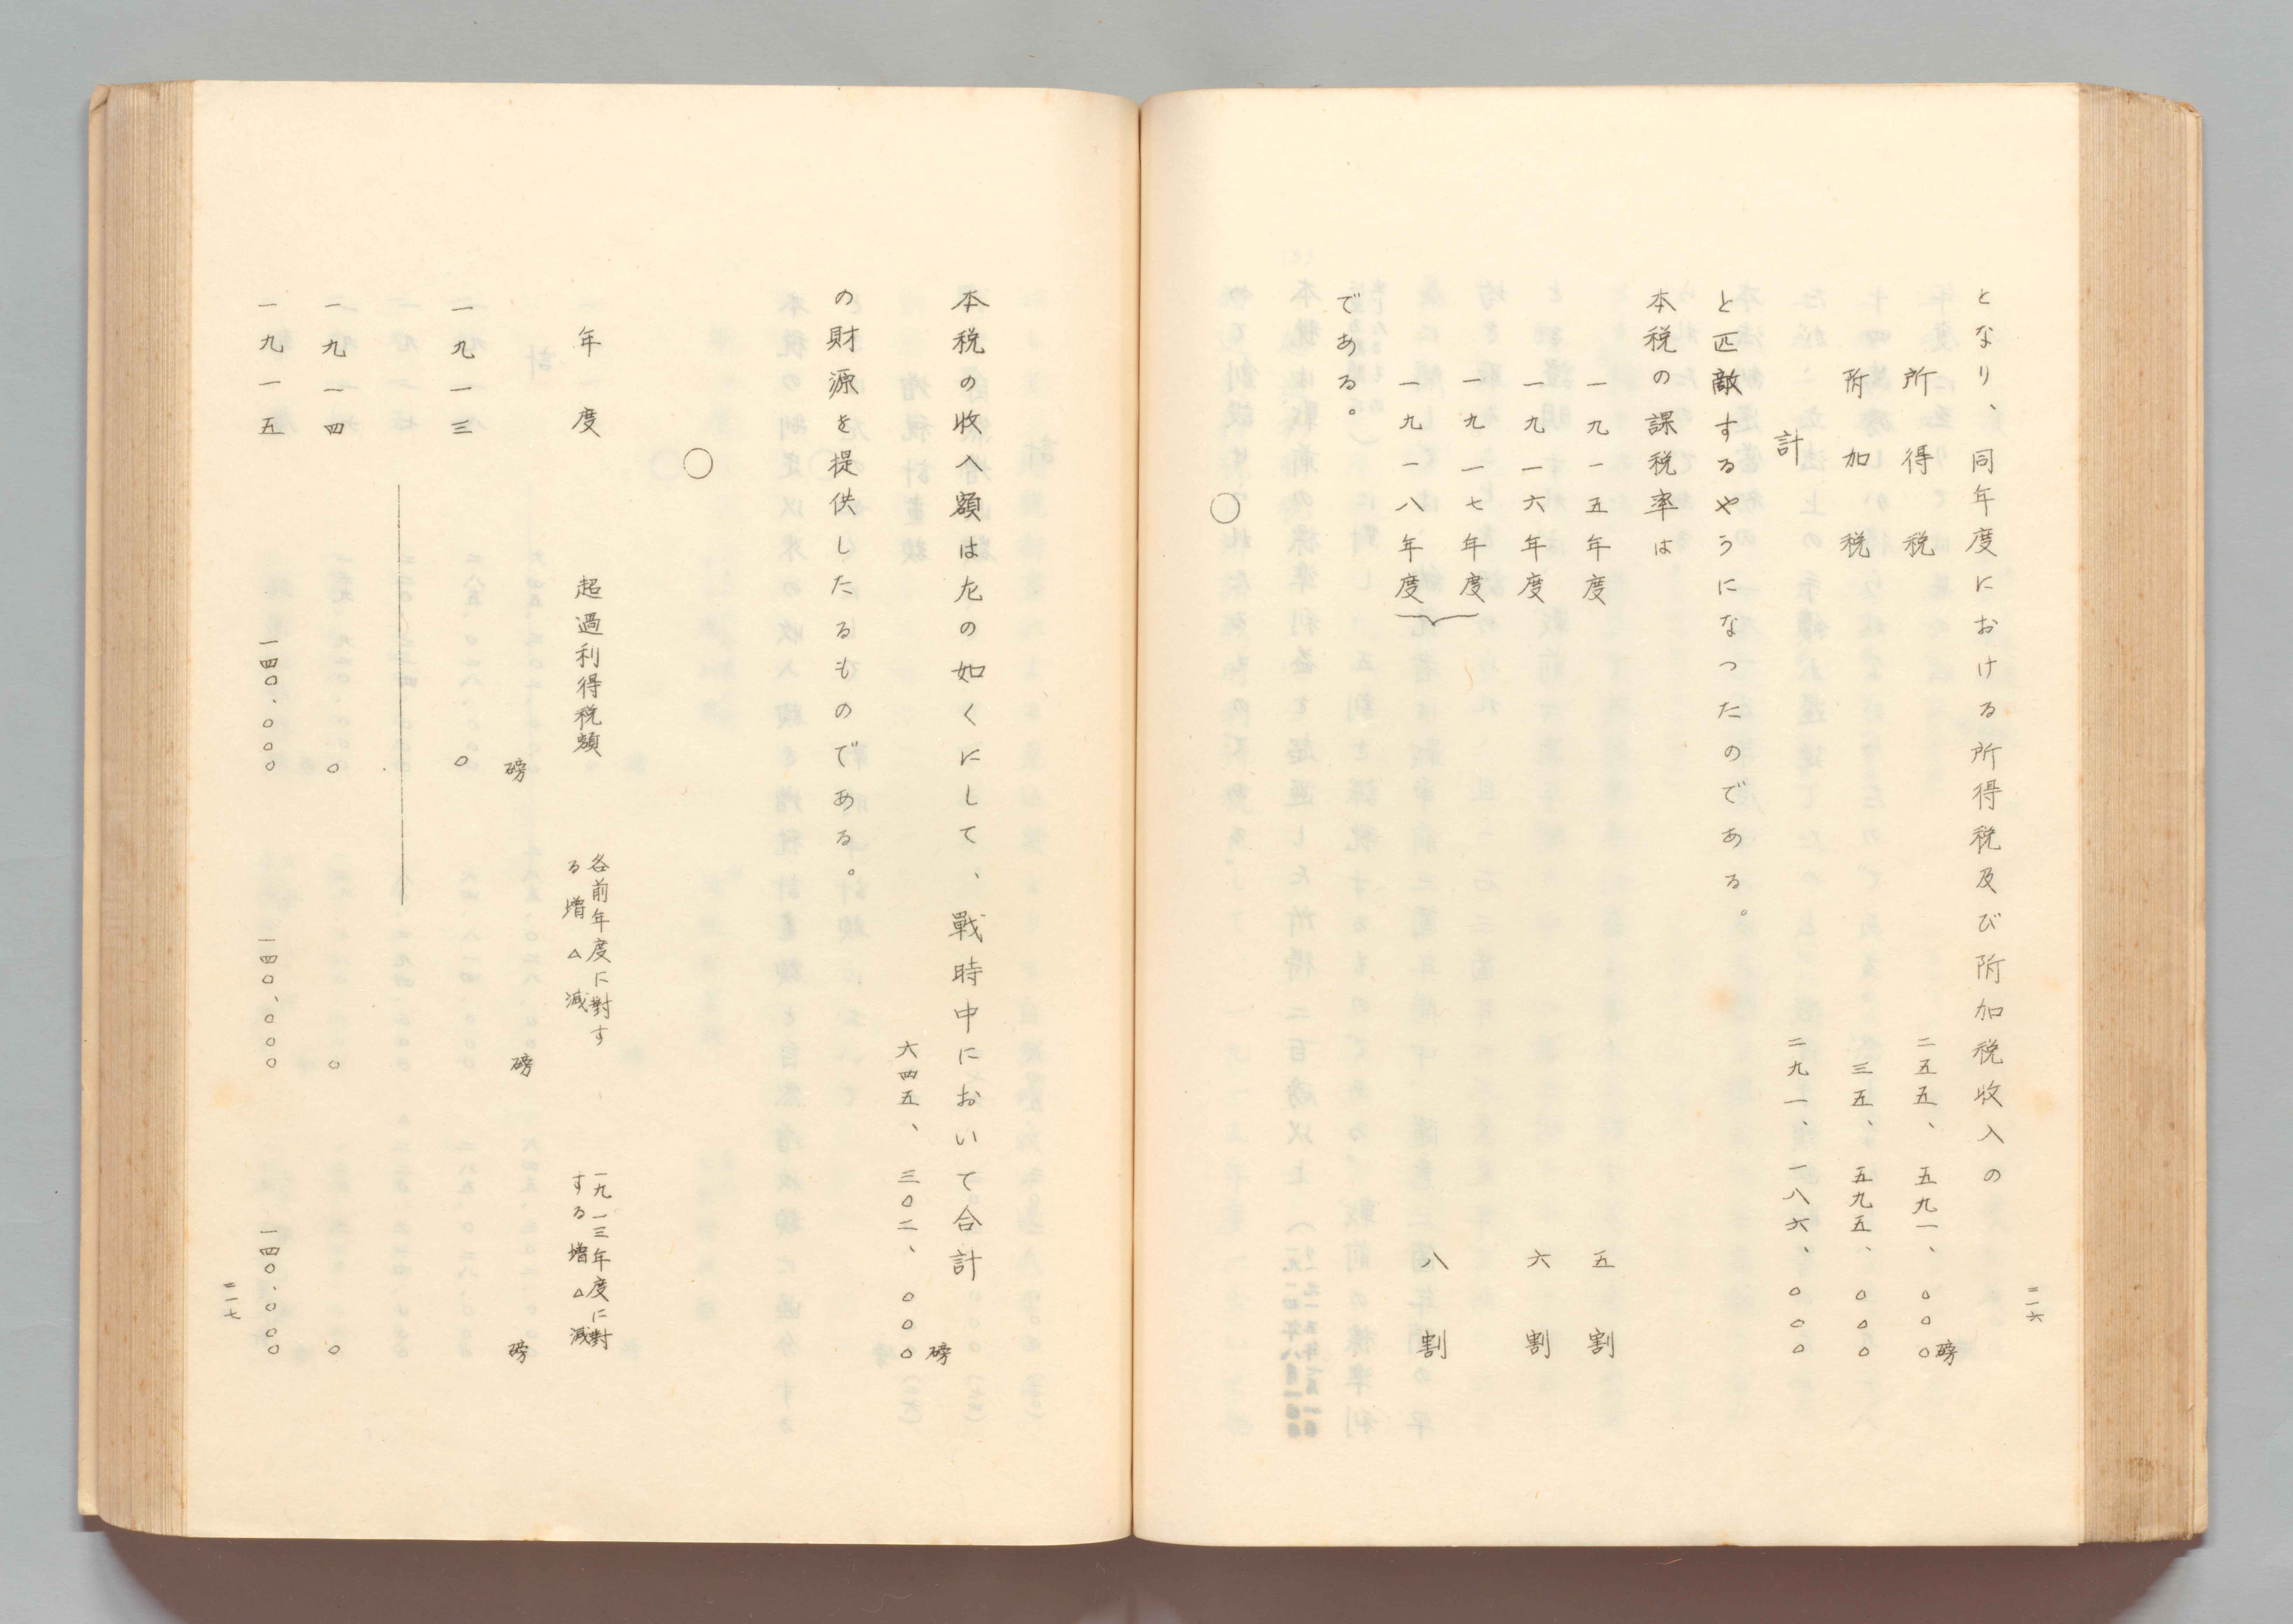 二一六
となり、同年度における所得税及び附加税収入の
所得税 二五五、五九一、〇〇〇磅
附加税 三五、五九五、〇〇〇
計 二九一、一八六、〇〇〇
と匹敵するやうになつたのである。
本税の課税率は
一九一五年度 五割
一九一六年度 六割
一九一七年度
一九一八年度 八割
である。
〇
本税の收入額は左の如くにして、戰時中において合計
六四五、三〇二、〇〇〇磅
の財源を提供したるものである。
〇
年度 超過利得税額 各前年度に對する増△減 一九一三年度に對する増△減
磅 磅 磅
一九一三 〇
一九一四 〇 〇 〇
一九一五 一四〇、〇〇〇 一四〇、〇〇〇 一四〇、〇〇〇
二一七